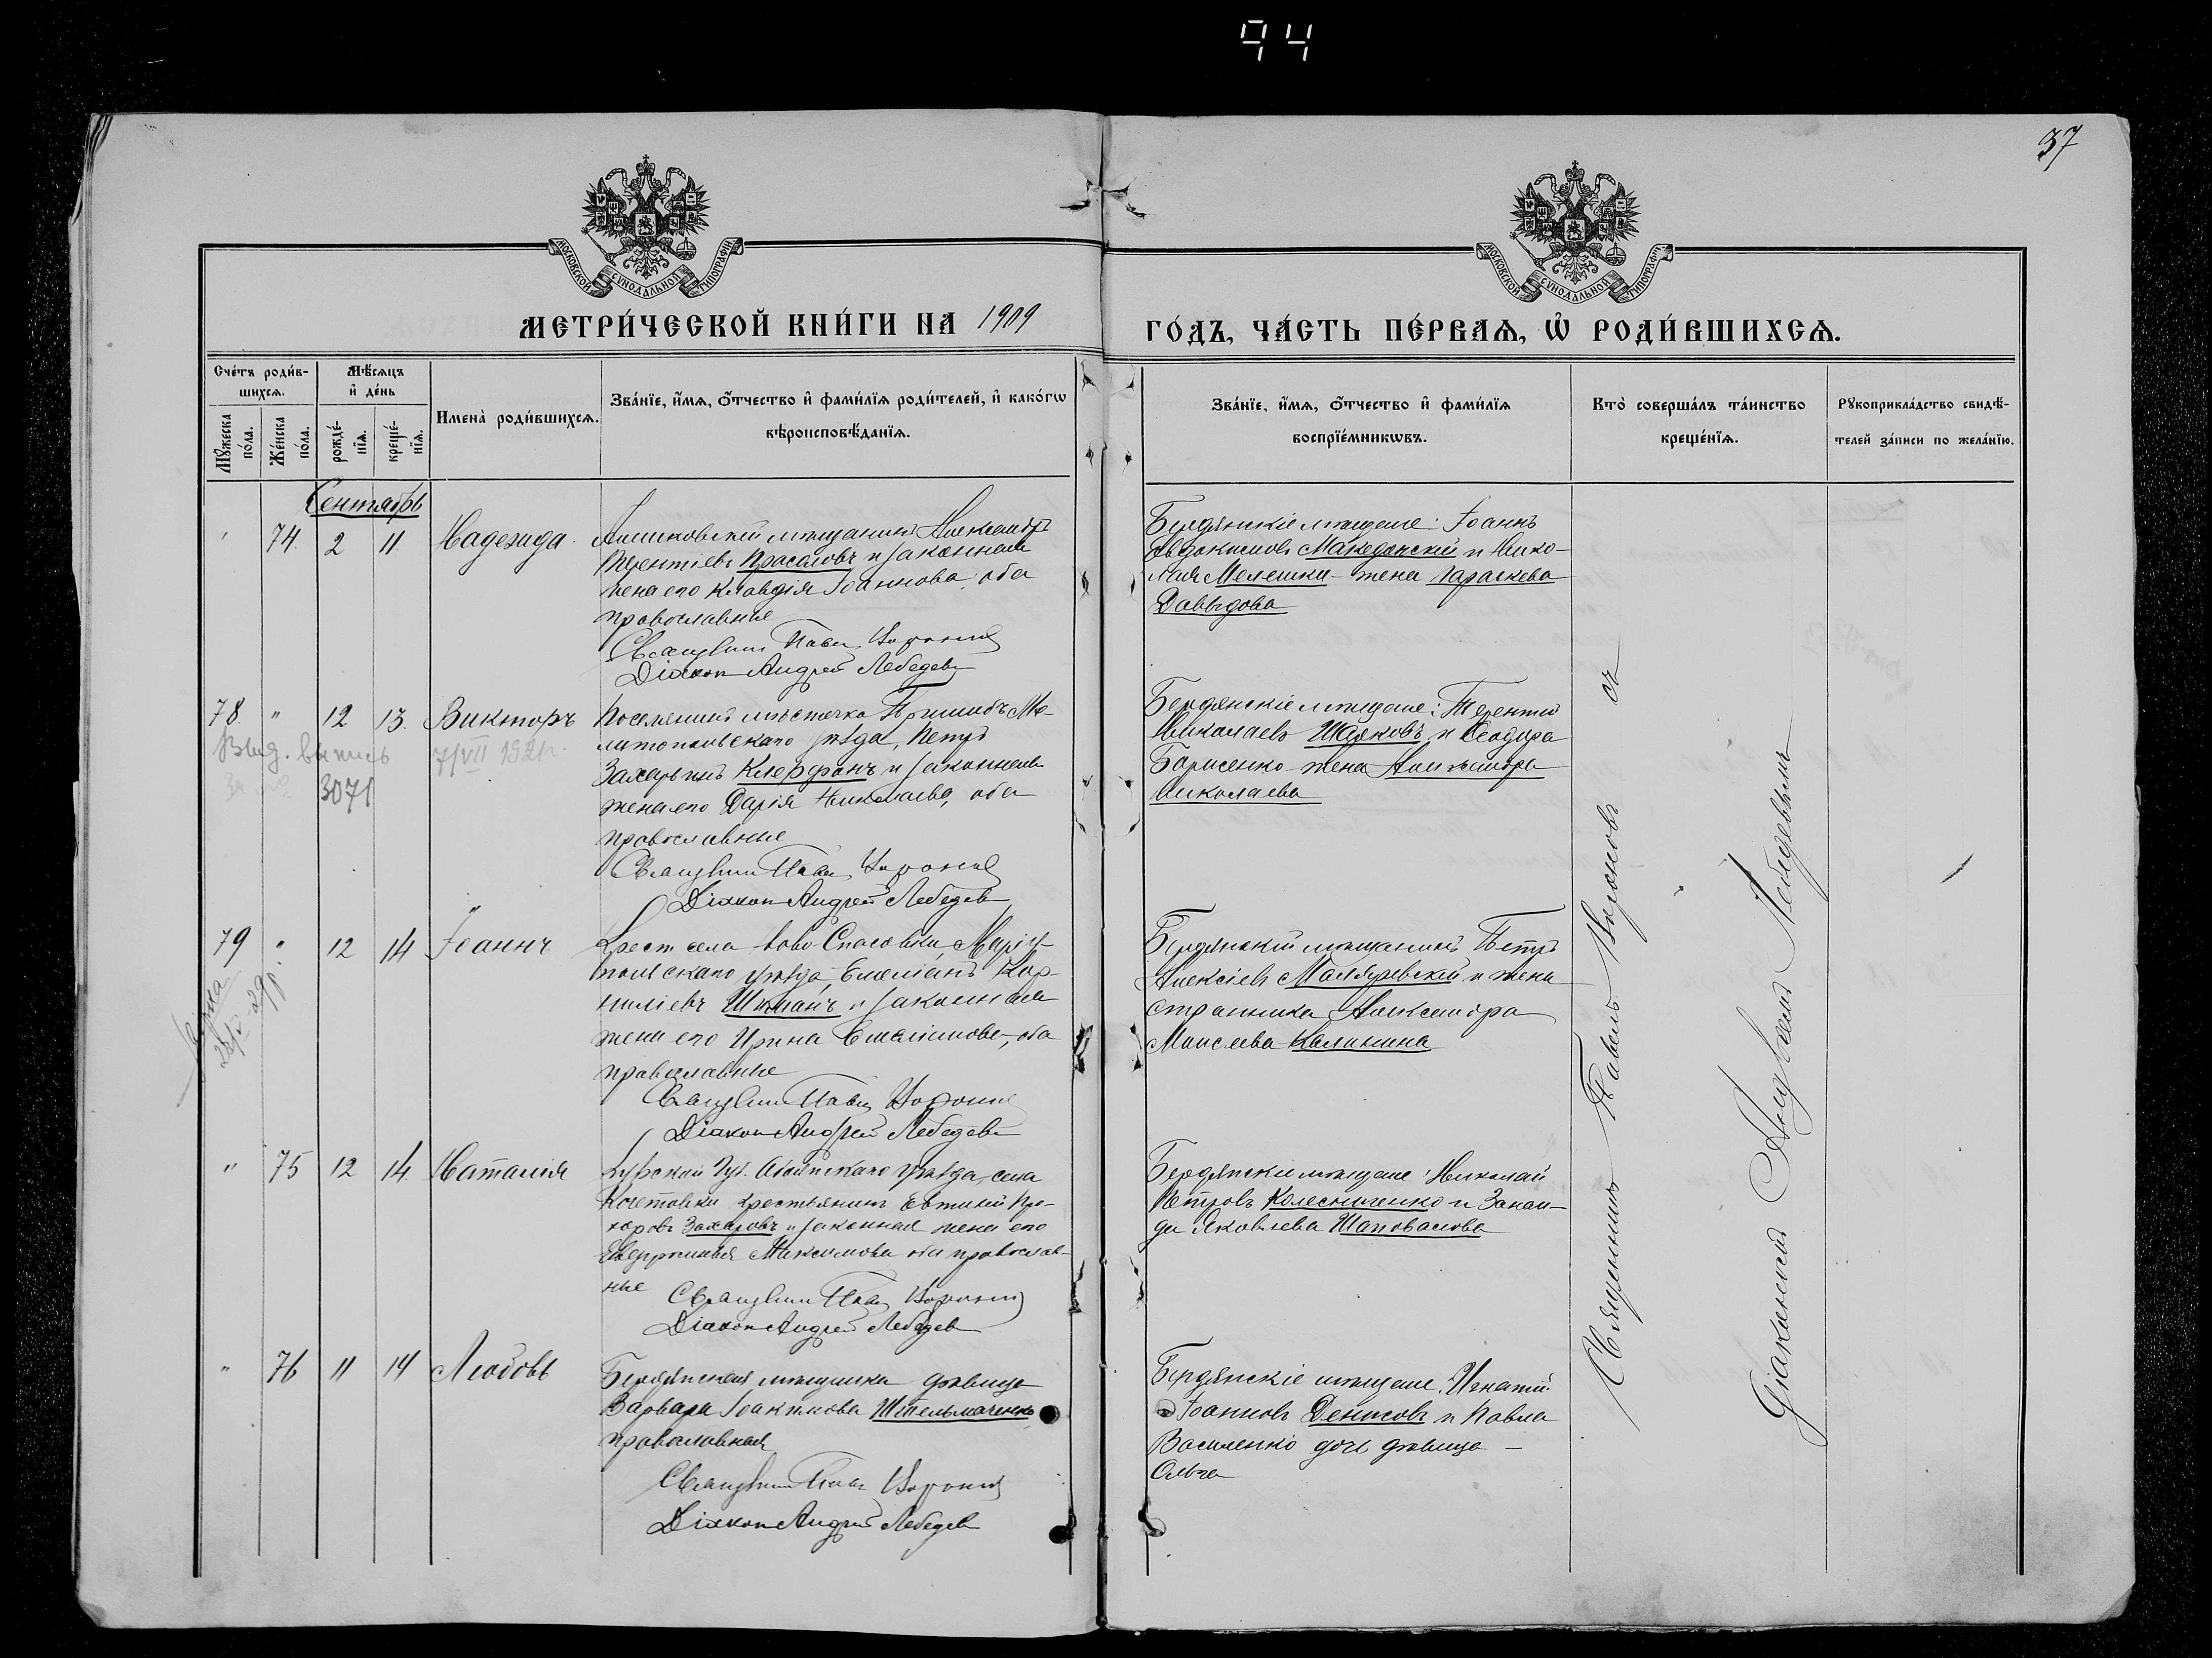 94
37
МОСКОВСКОЙ СѴНОДАЛЬНОЙ ТИПОГРАФІИ
МОСКОВСКОЙ СѴНОДАЛЬНОЙ ТИПОГРАФІИ
МЕТРИ́ЧЕСКОЙ КНИ́ГИ НА 1909
ГО́ДЪ, ЧА́СТЬ ПЕ́РВАѦ, Ѡ҆ РОДИ́ВШИХСѦ.
Сче́тъ роди́в-
шихсѧ.
Мꙋ́жеска
по́ла.
Же́нска
по́ла.
Мѣ́сѧцъ
и҆ де́нь
рожде́-
нїѧ.
креще́-
нїѧ.
Имена̀ роди́вшихсѧ.
Зва́нїе, и҆́мѧ, ѻ҆́тчество и҆ фами́лїѧ роди́телей, и҆ како́гѡ
вѣроисповѣ́данїѧ.
Зва́нїе, и҆́мѧ, ѻ҆́тчество и҆ фами́лїѧ
воспрїе́мникѡвъ.
Кто̀ соверша́лъ та́инство
креще́нїѧ.
Рꙋкоприкла́дство свидѣ́-
телей за́писи по жела́нїю.
Сентябрь
" 74. 2 11. Надежда.
мѣщанинъ Александръ
Терентіевъ Прасоловъ и законная
жена его Клавдія Іоаннова, оба
православные
Священникъ Павелъ Вороновъ
Діаконъ Андрей Лебедевъ
Бердянскіе мѣщане: Іоаннъ
Евдокимовъ Македонскій и Нико-
лая Мелешки - жена Параскева
Давыдова
78. " 12 13. Викторъ
Выд. выпись 7/VII 192
3071
Поселянинъ мѣстечка Пришибъ Ме-
литопольскаго уѣзда, Петръ
Захарьинъ и законная
жена его Дарія Николаева, оба
православные
Священникъ Павелъ Вороновъ
Діаконъ Андрей Лебедевъ
Бердянскіе мѣщане: Терентій
Николаевъ и Ѳеодора
Борисенко - жена Александра
Николаева
79 " 12 14 Іоаннъ
Крест. села Ново-Спасовки, Маріу-
польскаго уѣзда, Емеліанъ Кор-
ниліевъ и законная
жена его Ирина Емеліанова, оба
православные
Священникъ Павелъ Вороновъ
Діаконъ Андрей Лебедевъ
Бердянскій мѣщанинъ Петръ
Алексіевъ и жена
странника Александра
Моисеева Калинина
" 75 12 14. Наталія
Курской губ. Обоянскаго уѣзда, села
крестьянинъ Евтихій Про-
хоровъ Захаровъ и законная жена его
Максимова оба православ-
ные
Священникъ Павелъ Вороновъ
Діаконъ Андрей Лебедевъ
Бердянскіе мѣщане: Николай
Петровъ Колесниченко и Зинаи-
да Яковлева Шаповалова
" 76 11 14 Любовь
Бердянская мѣщанка дѣвица
Варвара Іоакимова Штельмаченко
православная
Священникъ Павелъ Вороновъ
Діаконъ Андрей Лебедевъ
Бердянскіе мѣщане: Игнатій
Іоанновъ Денисовъ и Павла
Василенко дочь дѣвица -
Ольга
Священникъ Павелъ Вороновъ съ
Діакономъ Андреемъ Лебедевымъ